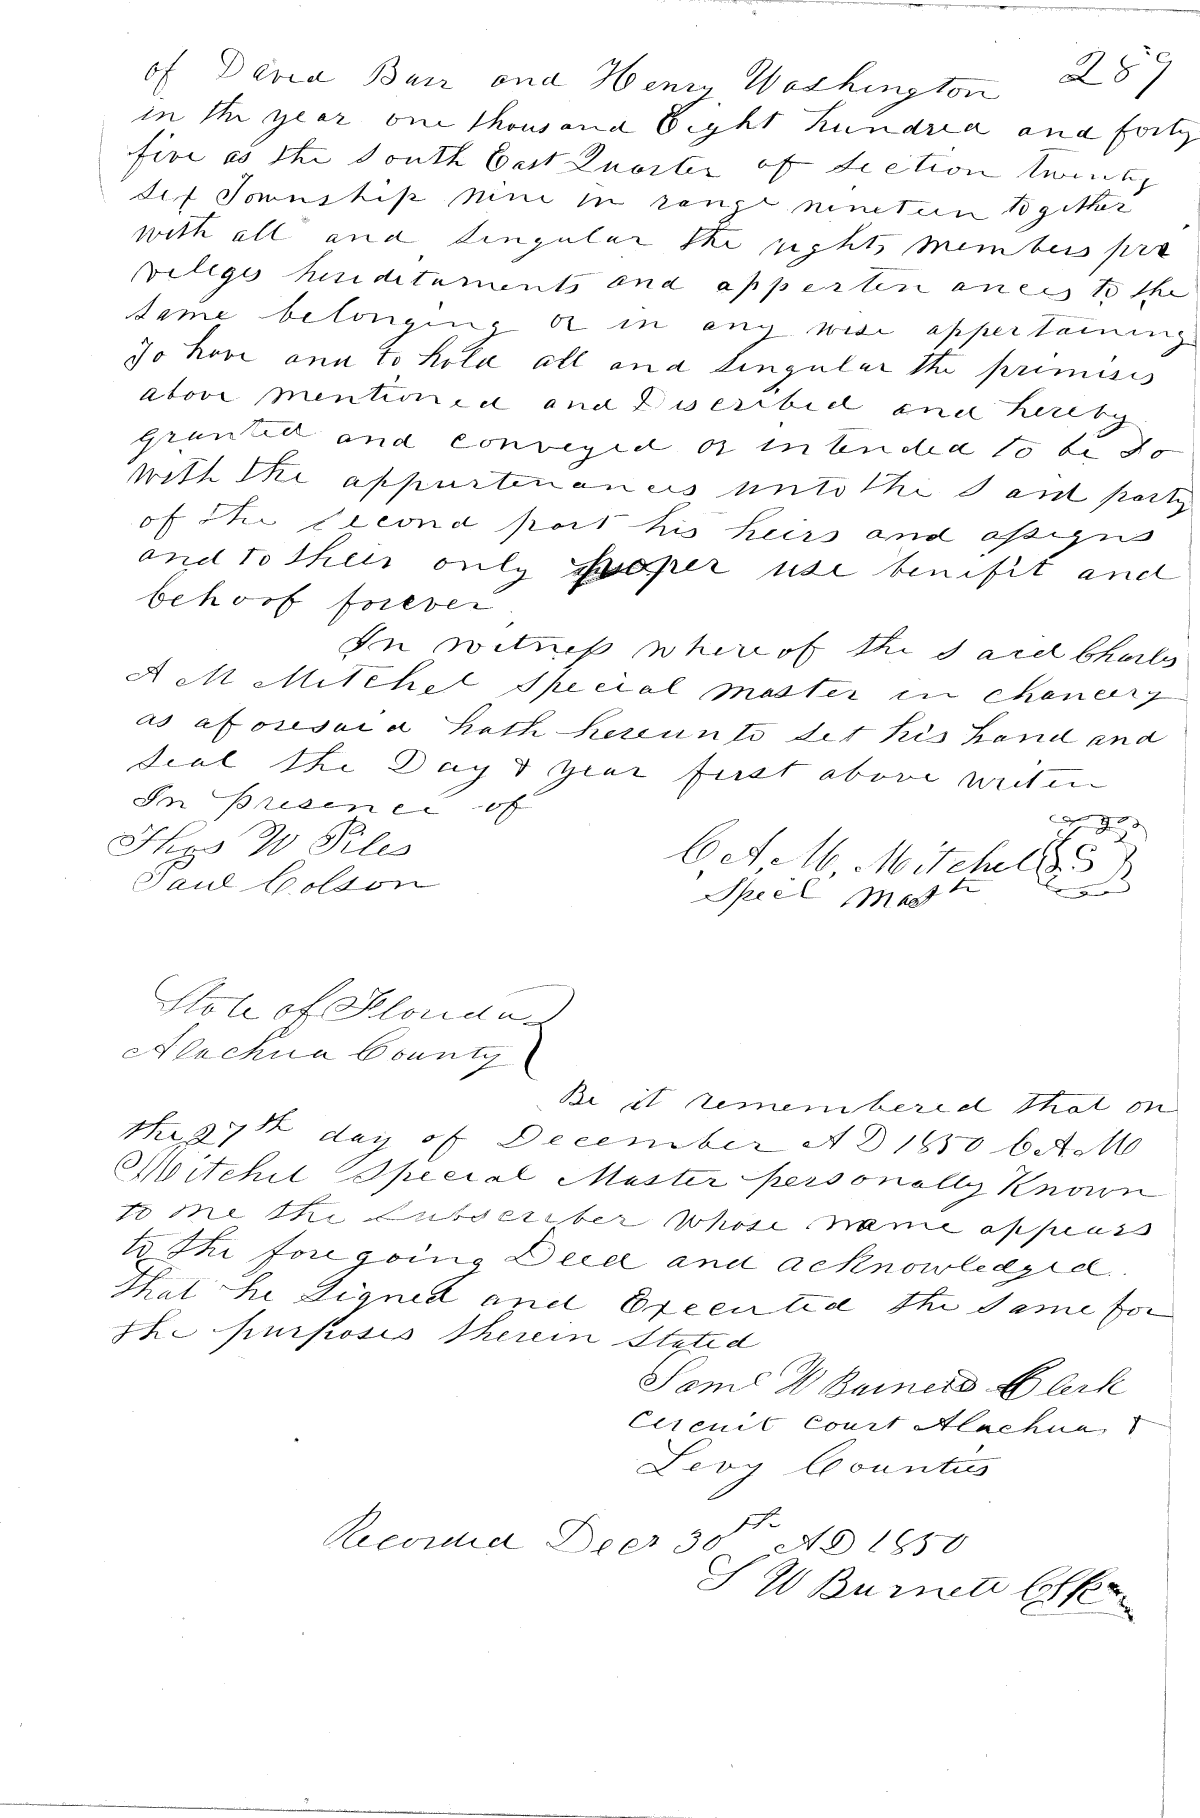 289
of David Barr and Henry Washington
in the year one thousand Eight hundred and forty
five as the South East Quarter of Section twenty
six Township nine in range nineteen together
with all and singular the rights members pri
veleges heriditaments and appertenances to the
same belonging or in any wise appertaining
To have and to hold all and singular the premises
above mentioned and Discribed and hereby
granted and conveyed or intended to be so
with the appurtenances unto the said party
of the second part his heirs and assigns
and to their only proper use benifit and
behoof forever
In witness whereof the said Charles
A M Mitchel Special master in chancery
as aforesaid hath hereunto set his hand and
seal the Day & year first above writen
In presence of
Thos W Piles
Paul Colson
C. A. M. Mitchel LS
Specl Mastr
State of Florida
Alachua County
Be it remembered that on
the 27th day of December A D 1850 C A M
Mitchel Special Master personally Known
to me the subscriber whose name appears
to the foregoing Deed and acknowledged
that he Signed and Executed the same for
the purposes therein stated
Saml W Burnett Clerk
Circuit Court Alachua &
Levy Counties
Recorded Decr 30th AD 1850
S W Burnett Clk